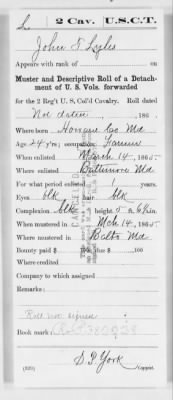 L 2 Cav. U.S.C.T.
John F. Lyles
Appears with rank of on
Muster and Descriptive Roll of a Detach-
ment of U. S. Vols. forwarded
for the 2 Reg't U. S. Col'd Cavalry. Roll dated
Not dated, 186 .
Where born Howard Co Md
Age 24 y'rs; occupation Farmer
When enlisted March 14, 1865
Where enlisted Baltimore Md
For what period enlisted 1 years.
Eyes Blk; hair Blk
Complexion Blk; height 5 ft. 6½ in.
When mustered in Mch 14, 1865
Where mustered in Balto Md
Bounty paid $ 100; due $ 100
Where credited
Company to which assigned
Remarks:
CANCELED
Roll not signed
Book mark:
S. P. York
(339) Copyist.